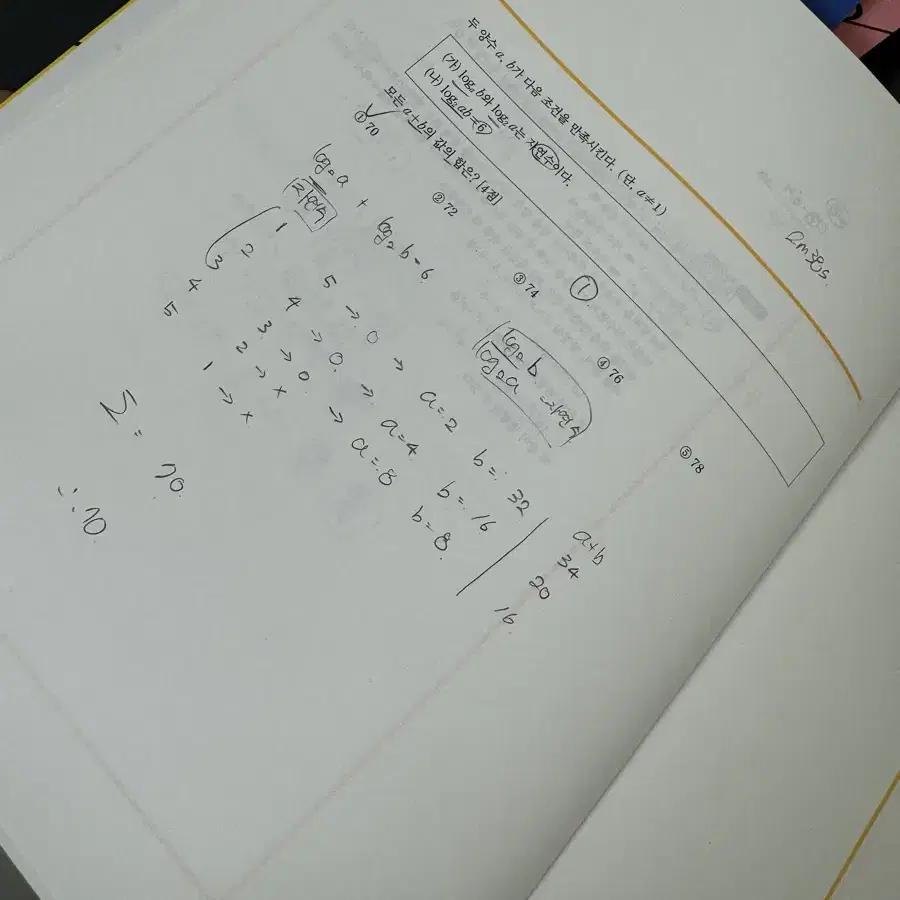 두 양수 a, b가 다음 조건을 만족시킨다. (단, a≠1)
(가) logₐ b와 log₂ a는 자연수이다.
(나) log₂ ab = 6
모든 a+b의 값의 합은? [4점]
① 70 ② 72 ③ 74 ④ 76 ⑤ 78
2m38s.
①
log₂a + log₂b = 6
자연수
log₂b
log₂a → 자연수
1 5 → 0 → a=2 b=32
2 4 → 0 → a=4 b=16
3 3 → 0 → a=8 b=8
4 2 → x
5 1 → x
a+b
34
20
16
Σ = 70
∴ 70